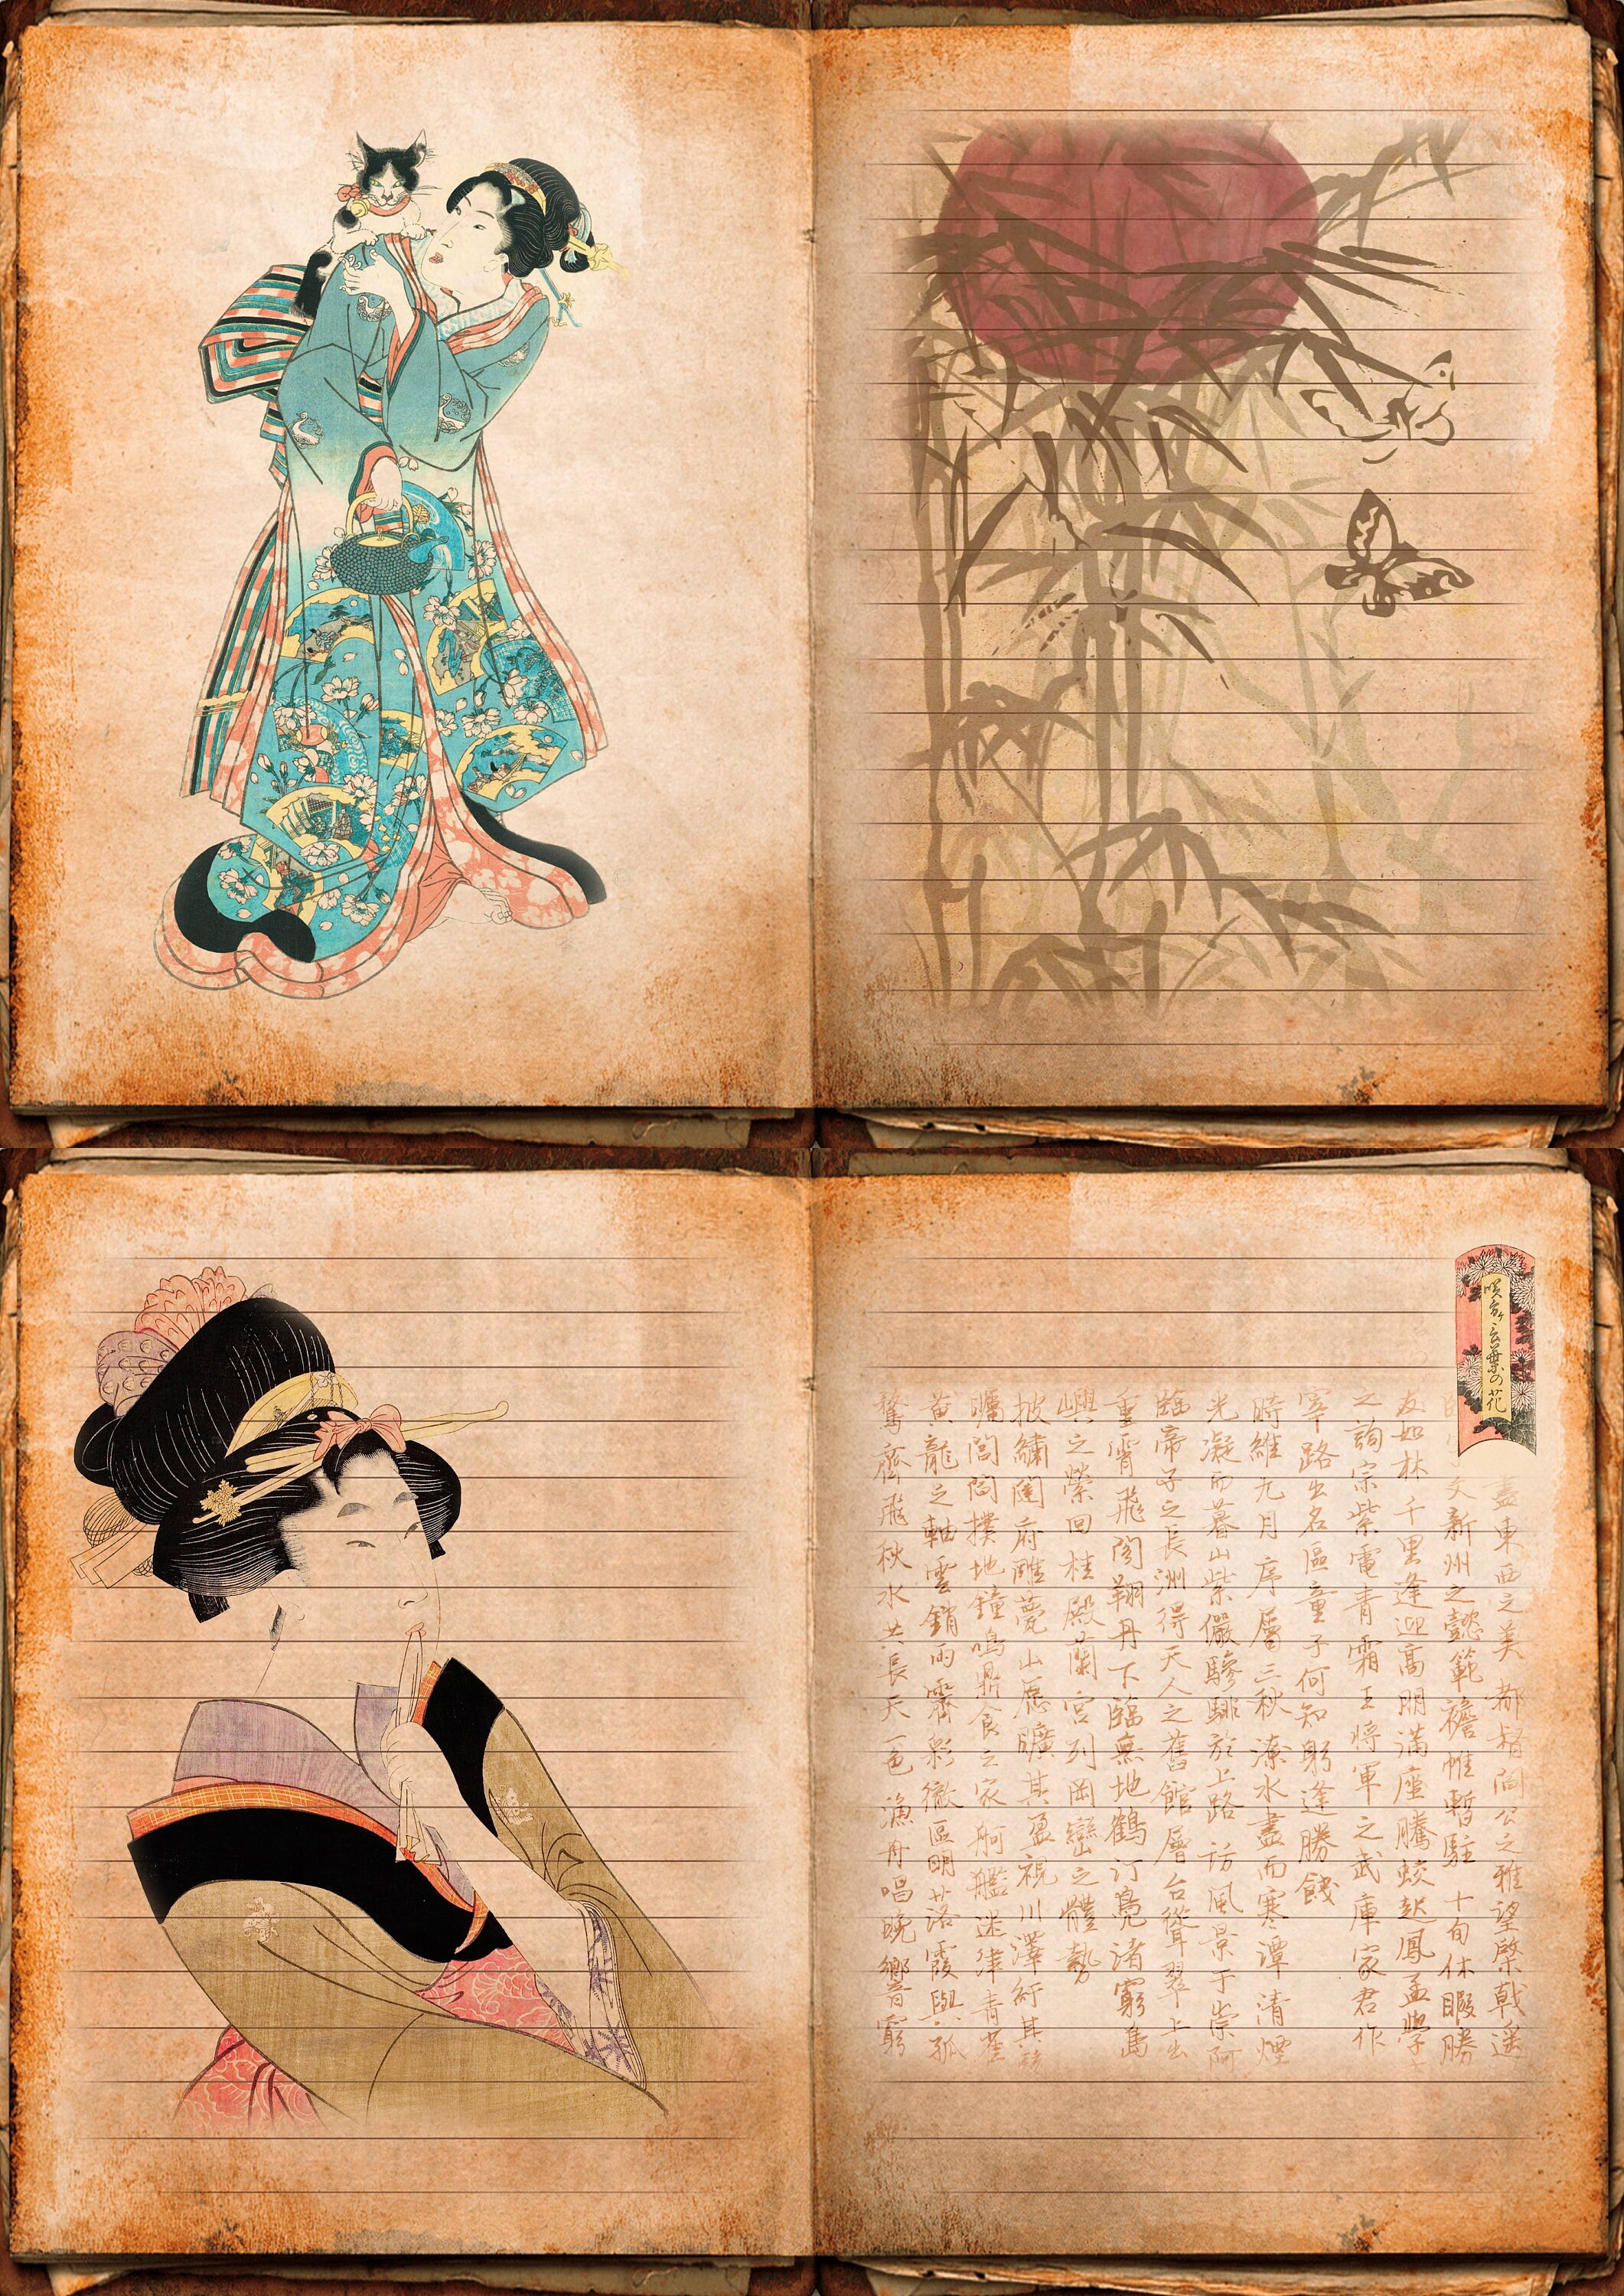 咲分ケ言葉の花
盡東西之美都督閻公之雅望棨戟遙
文新州之懿範襜帷暫駐 十旬休暇勝
友如林 千里逢迎高朋滿座騰蛟起鳳孟學
之詞宗紫電青霜王將軍之武庫家君作
宰路出名區童子何知躬逢勝餞
時維九月序屬三秋潦水盡而寒潭清煙
光凝而暮山紫儼驂騑於上路訪風景于崇阿
臨帝子之長洲得天人之舊館層台聳翠上出
重霄飛閣翔丹下臨無地鶴汀鳧渚窮島
嶼之縈回桂殿蘭宮列岡巒之體勢
披繡闥府雕甍山原曠其盈視川澤紆其駭
矚閭閻撲地鐘鳴鼎食之家舸艦迷津青雀
黃龍之軸雲銷雨霽彩徹區明落霞與孤
鶩齊飛秋水共長天一色 漁舟唱晚響窮